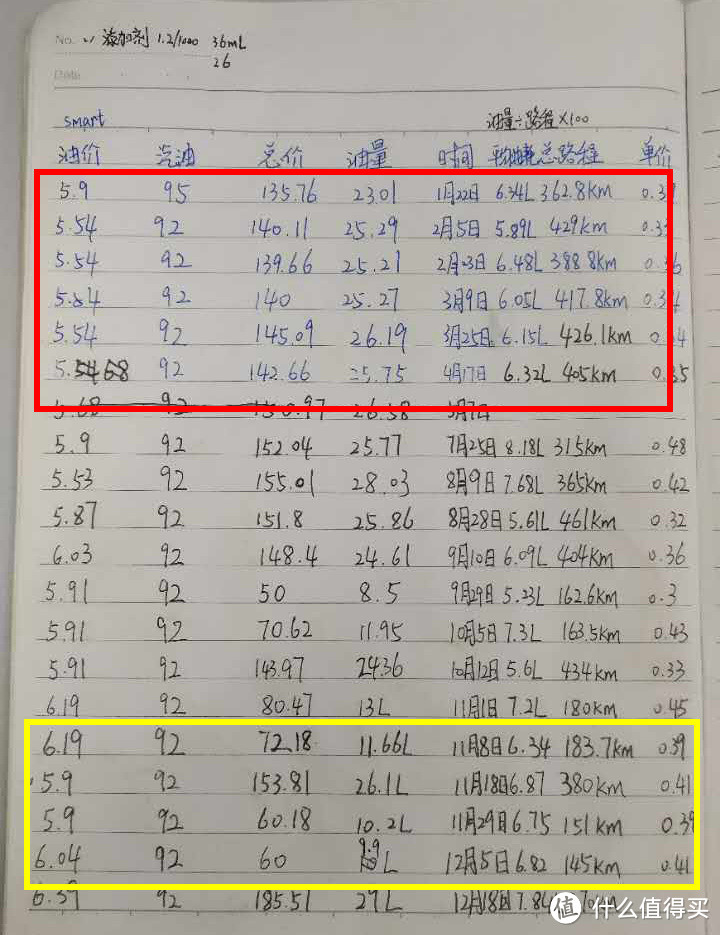 No. 添加剂 1.2/1000 36mL
26
Date
smart 油量÷路程×100
油价 汽油 总价 油量 时间 总路程 单价
5.9 95 135.76 23.01 1月22日 6.34L 362.8km 0.3
5.54 92 140.11 25.29 2月5日 5.89L 429km 0.3
5.54 92 139.66 25.21 2月23日 6.48L 388.8km 0.36
5.54 92 140 25.27 3月9日 6.05L 417.8km 0.34
5.54 92 145.09 26.19 3月25日 6.15L 426.1km 0.34
5.5468 92 142.66 25.75 4月17日 6.32L 405km 0.35
5.68 92 150.97 26.58 5月7日
5.9 92 152.04 25.77 7月25日 8.18L 315km 0.48
5.53 92 155.01 28.03 8月9日 7.68L 365km 0.42
5.87 92 151.8 25.86 8月28日 5.61L 461km 0.32
6.03 92 148.4 24.61 9月10日 6.09L 404km 0.36
5.91 92 50 8.5 9月29日 5.23L 162.6km 0.3
5.91 92 70.62 11.95 10月5日 7.3L 163.5km 0.43
5.91 92 143.97 24.36 10月12日 5.6L 434km 0.33
6.19 92 80.47 13L 11月1日 7.2L 180km 0.45
6.19 92 72.18 11.66L 11月8日 6.34 183.7km 0.39
5.9 92 153.81 26.1L 11月18日 6.87 380km 0.41
5.9 92 60.18 10.2L 11月29日 6.75 151km 0.39
6.04 92 60 9.9L 12月5日 6.82 145km 0.41
6.39 92 185.51 29L 12月18日 7.84
值 什么值得买